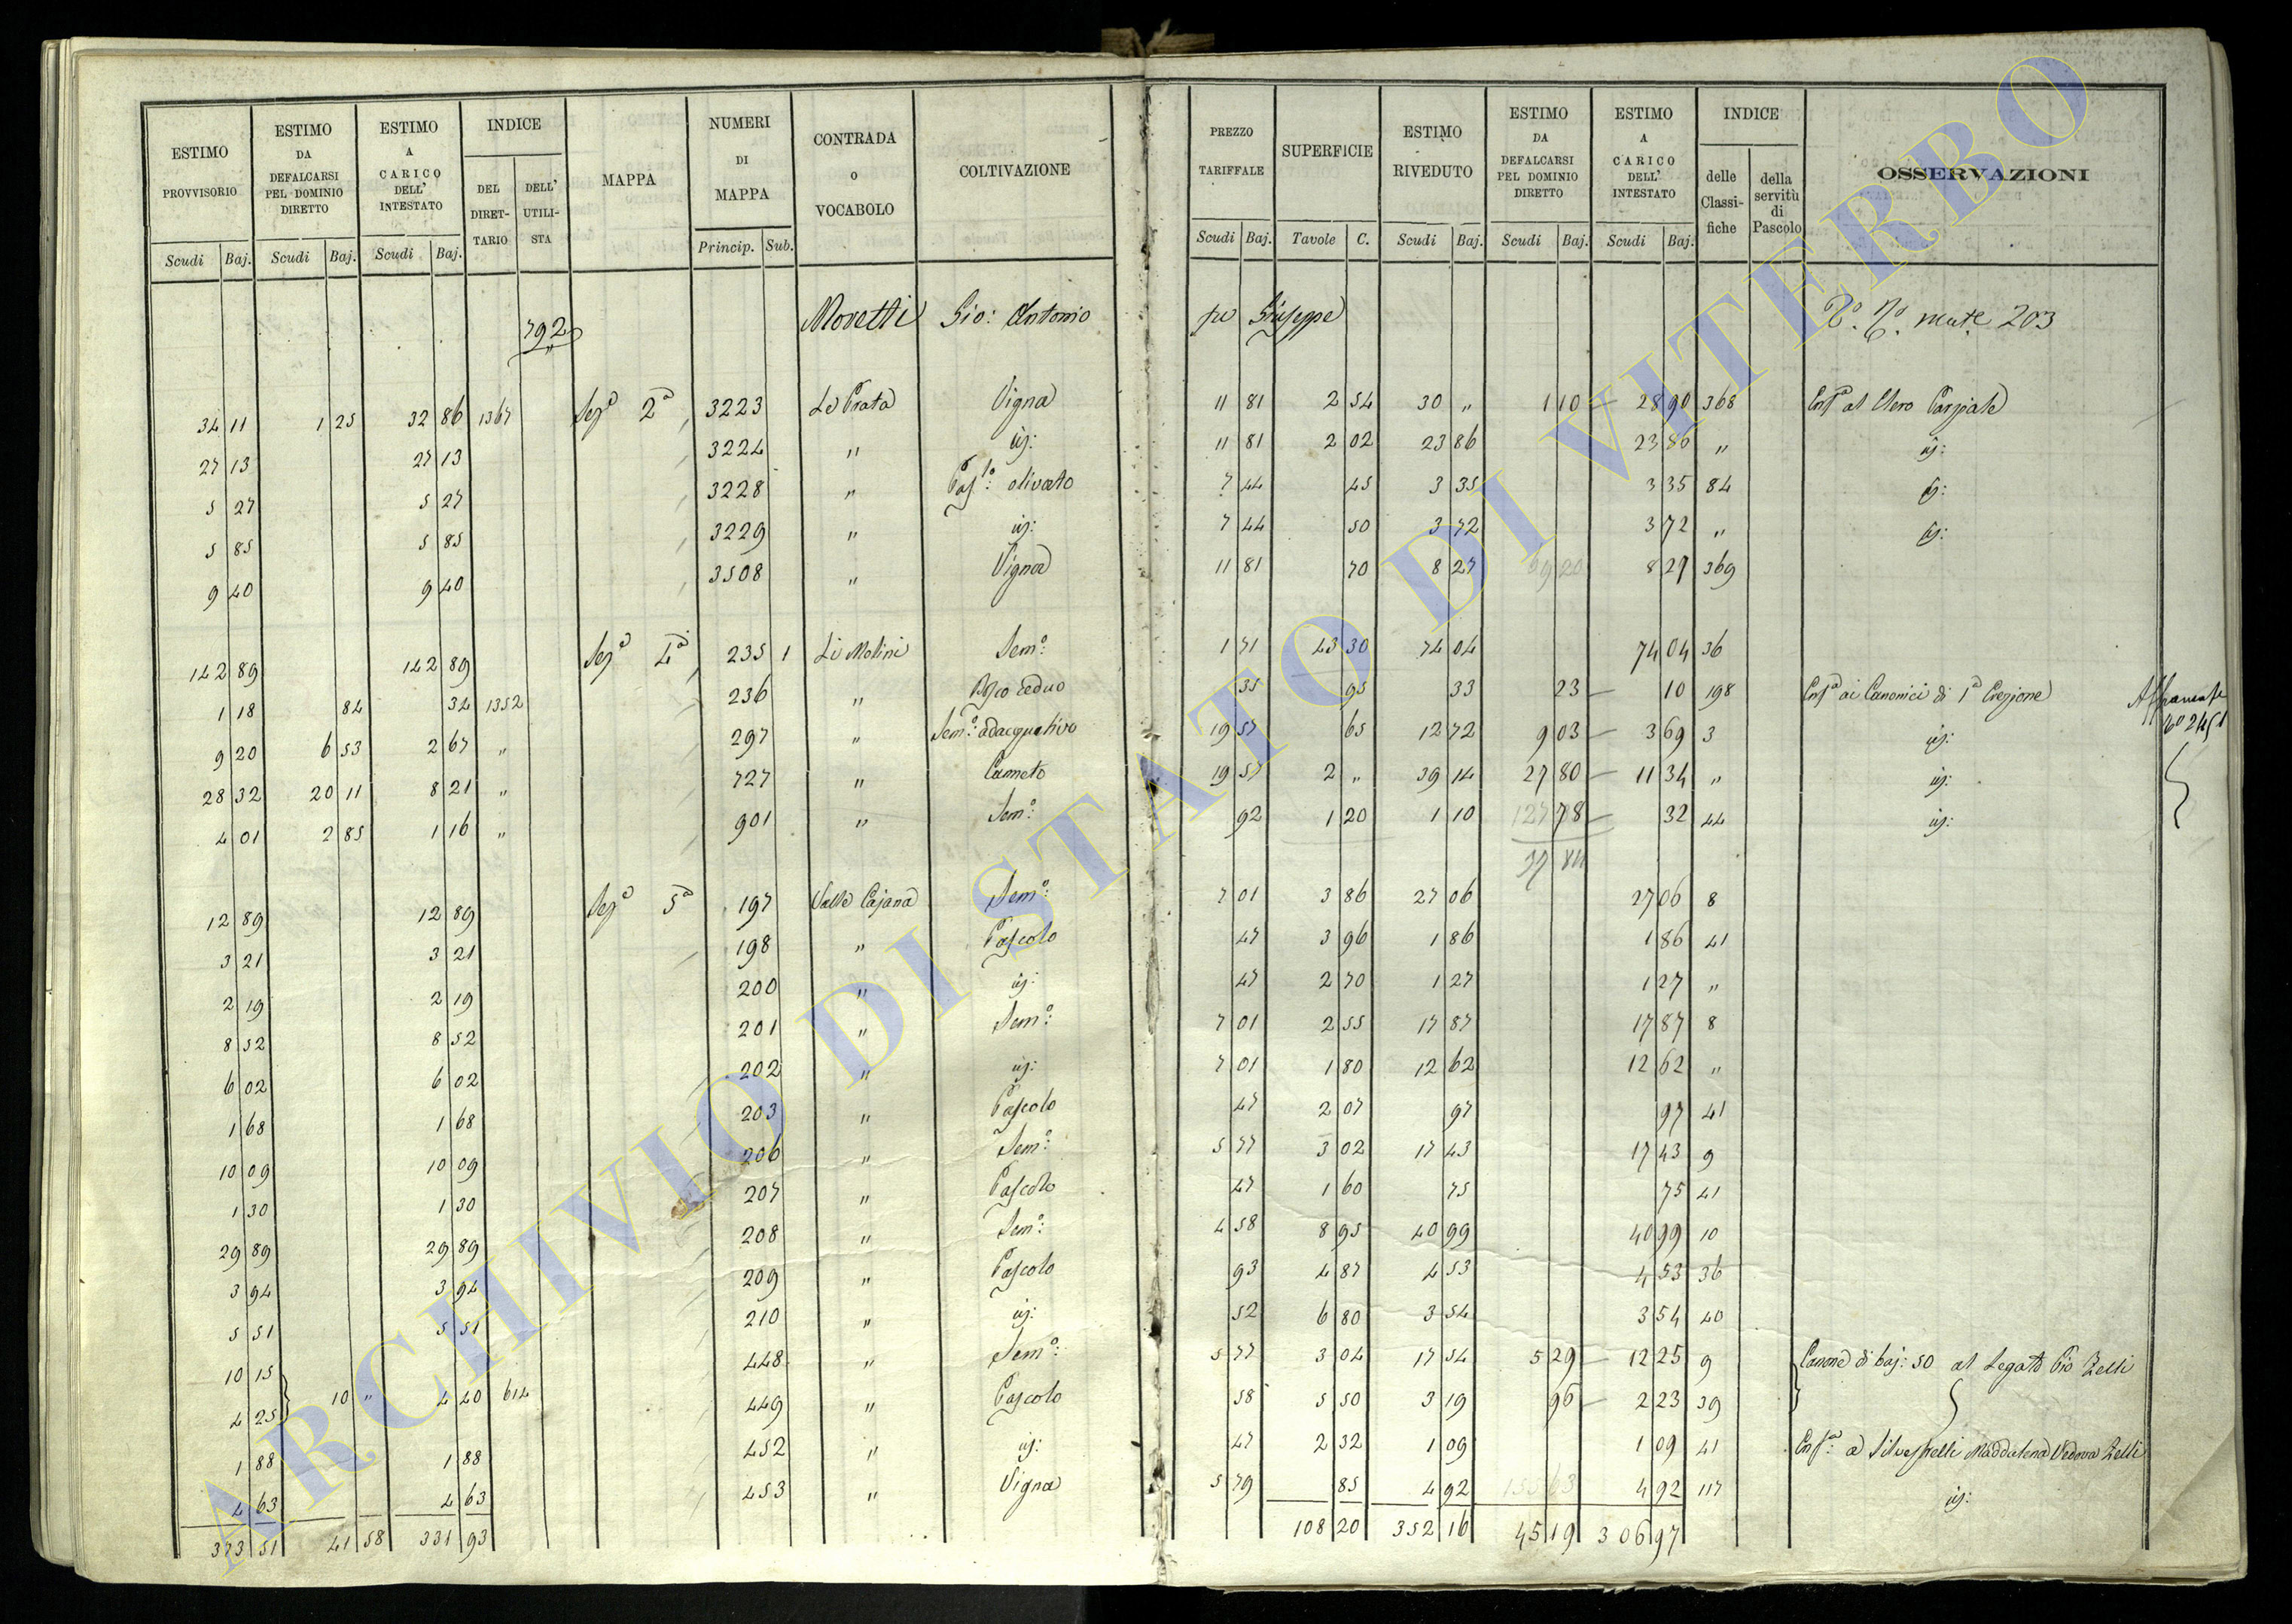 ESTIMO PROVVISORIO Scudi Baj.
ESTIMO DA DEFALCARSI PEL DOMINIO DIRETTO Scudi Baj.
ESTIMO A CARICO DELL' INTESTATO Scudi Baj.
INDICE DEL DIRETTARIO DELL' UTILISTA
MAPPA
NUMERI DI MAPPA Princip. Sub.
CONTRADA O VOCABOLO
COLTIVAZIONE
PREZZO TARIFFALE Scudi Baj.
SUPERFICIE Tavole C.
ESTIMO RIVEDUTO Scudi Baj.
ESTIMO DA DEFALCARSI PEL DOMINIO DIRETTO Scudi Baj.
ESTIMO A CARICO DELL' INTESTATO Scudi Baj.
INDICE delle Classifiche della servitù di Pascolo
OSSERVAZIONI
792 Moretti Gio: Antonio fu Giuseppe 203
34 11 1 25 32 86 1367 Sezª 2ª 3223 Le Prata Vigna 11 81 2 54 30 „ 1 10 28 90 368 al Clero
27 13 27 13 3224 „ id: 11 81 2 02 23 86 23 86 „ id:
5 27 5 27 3228 „ Pasº: olivato 7 44 45 3 35 3 35 84 id:
5 85 5 85 3229 „ id: 7 44 50 3 72 3 72 „ id:
9 40 9 40 3508 „ Vigna 11 81 70 8 27 8 27 369
142 89 142 89 Sezª 4ª 235 1 Li Molini Semº: 1 71 43 30 74 04 74 04 36
1 18 84 34 1352 236 „ Bosco ceduo 35 95 33 23 10 198 ai Canonici di 1ª Erezione
9 20 6 53 2 67 „ 297 „ Semº: adacquativo 19 57 65 12 72 9 03 3 69 3 id:
28 32 20 11 8 21 „ 727 „ Canneto 19 57 2 „ 39 14 27 80 11 34 „ id:
4 01 2 85 1 16 „ 901 „ Semº: 92 1 20 1 10 78 32 44 id:
12 89 12 89 Sezª 5ª 197 Valle Cajana Semº: 7 01 3 86 27 06 27 06 8
3 21 3 21 198 „ Pascolo 47 3 96 1 86 1 86 41
2 19 2 19 200 „ id: 47 2 70 1 27 1 27 „
8 52 8 52 201 „ Semº: 7 01 2 55 17 87 17 87 8
6 02 6 02 202 „ id: 7 01 1 80 12 62 12 62 „
1 68 1 68 203 „ Pascolo 47 2 07 97 97 41
10 09 10 09 206 „ Semº: 5 77 3 02 17 43 17 43 9
1 30 1 30 207 „ Pascolo 47 1 60 75 75 41
29 89 29 89 208 „ Semº: 4 58 8 95 40 99 40 99 10
3 94 3 94 209 „ Pascolo 93 4 87 4 53 4 53 36
5 51 5 51 210 „ id: 52 6 80 3 54 3 54 40
10 15 448 „ Semº: 5 77 3 04 17 54 5 29 12 25 9 Canone di baj: 50 al Legato Pio Zelli
4 25 10 „ 4 40 614 449 „ Pascolo 58 5 50 3 19 96 2 23 39
1 88 1 88 452 „ id: 47 2 32 1 09 1 09 41 a Silvestrelli Maddalena Vedova Zelli
4 63 4 63 453 „ Vigna 5 79 85 4 92 4 92 117 id:
373 51 41 58 331 93 108 20 352 16 45 19 306 97
ARCHIVIO DI STATO DI VITERBO